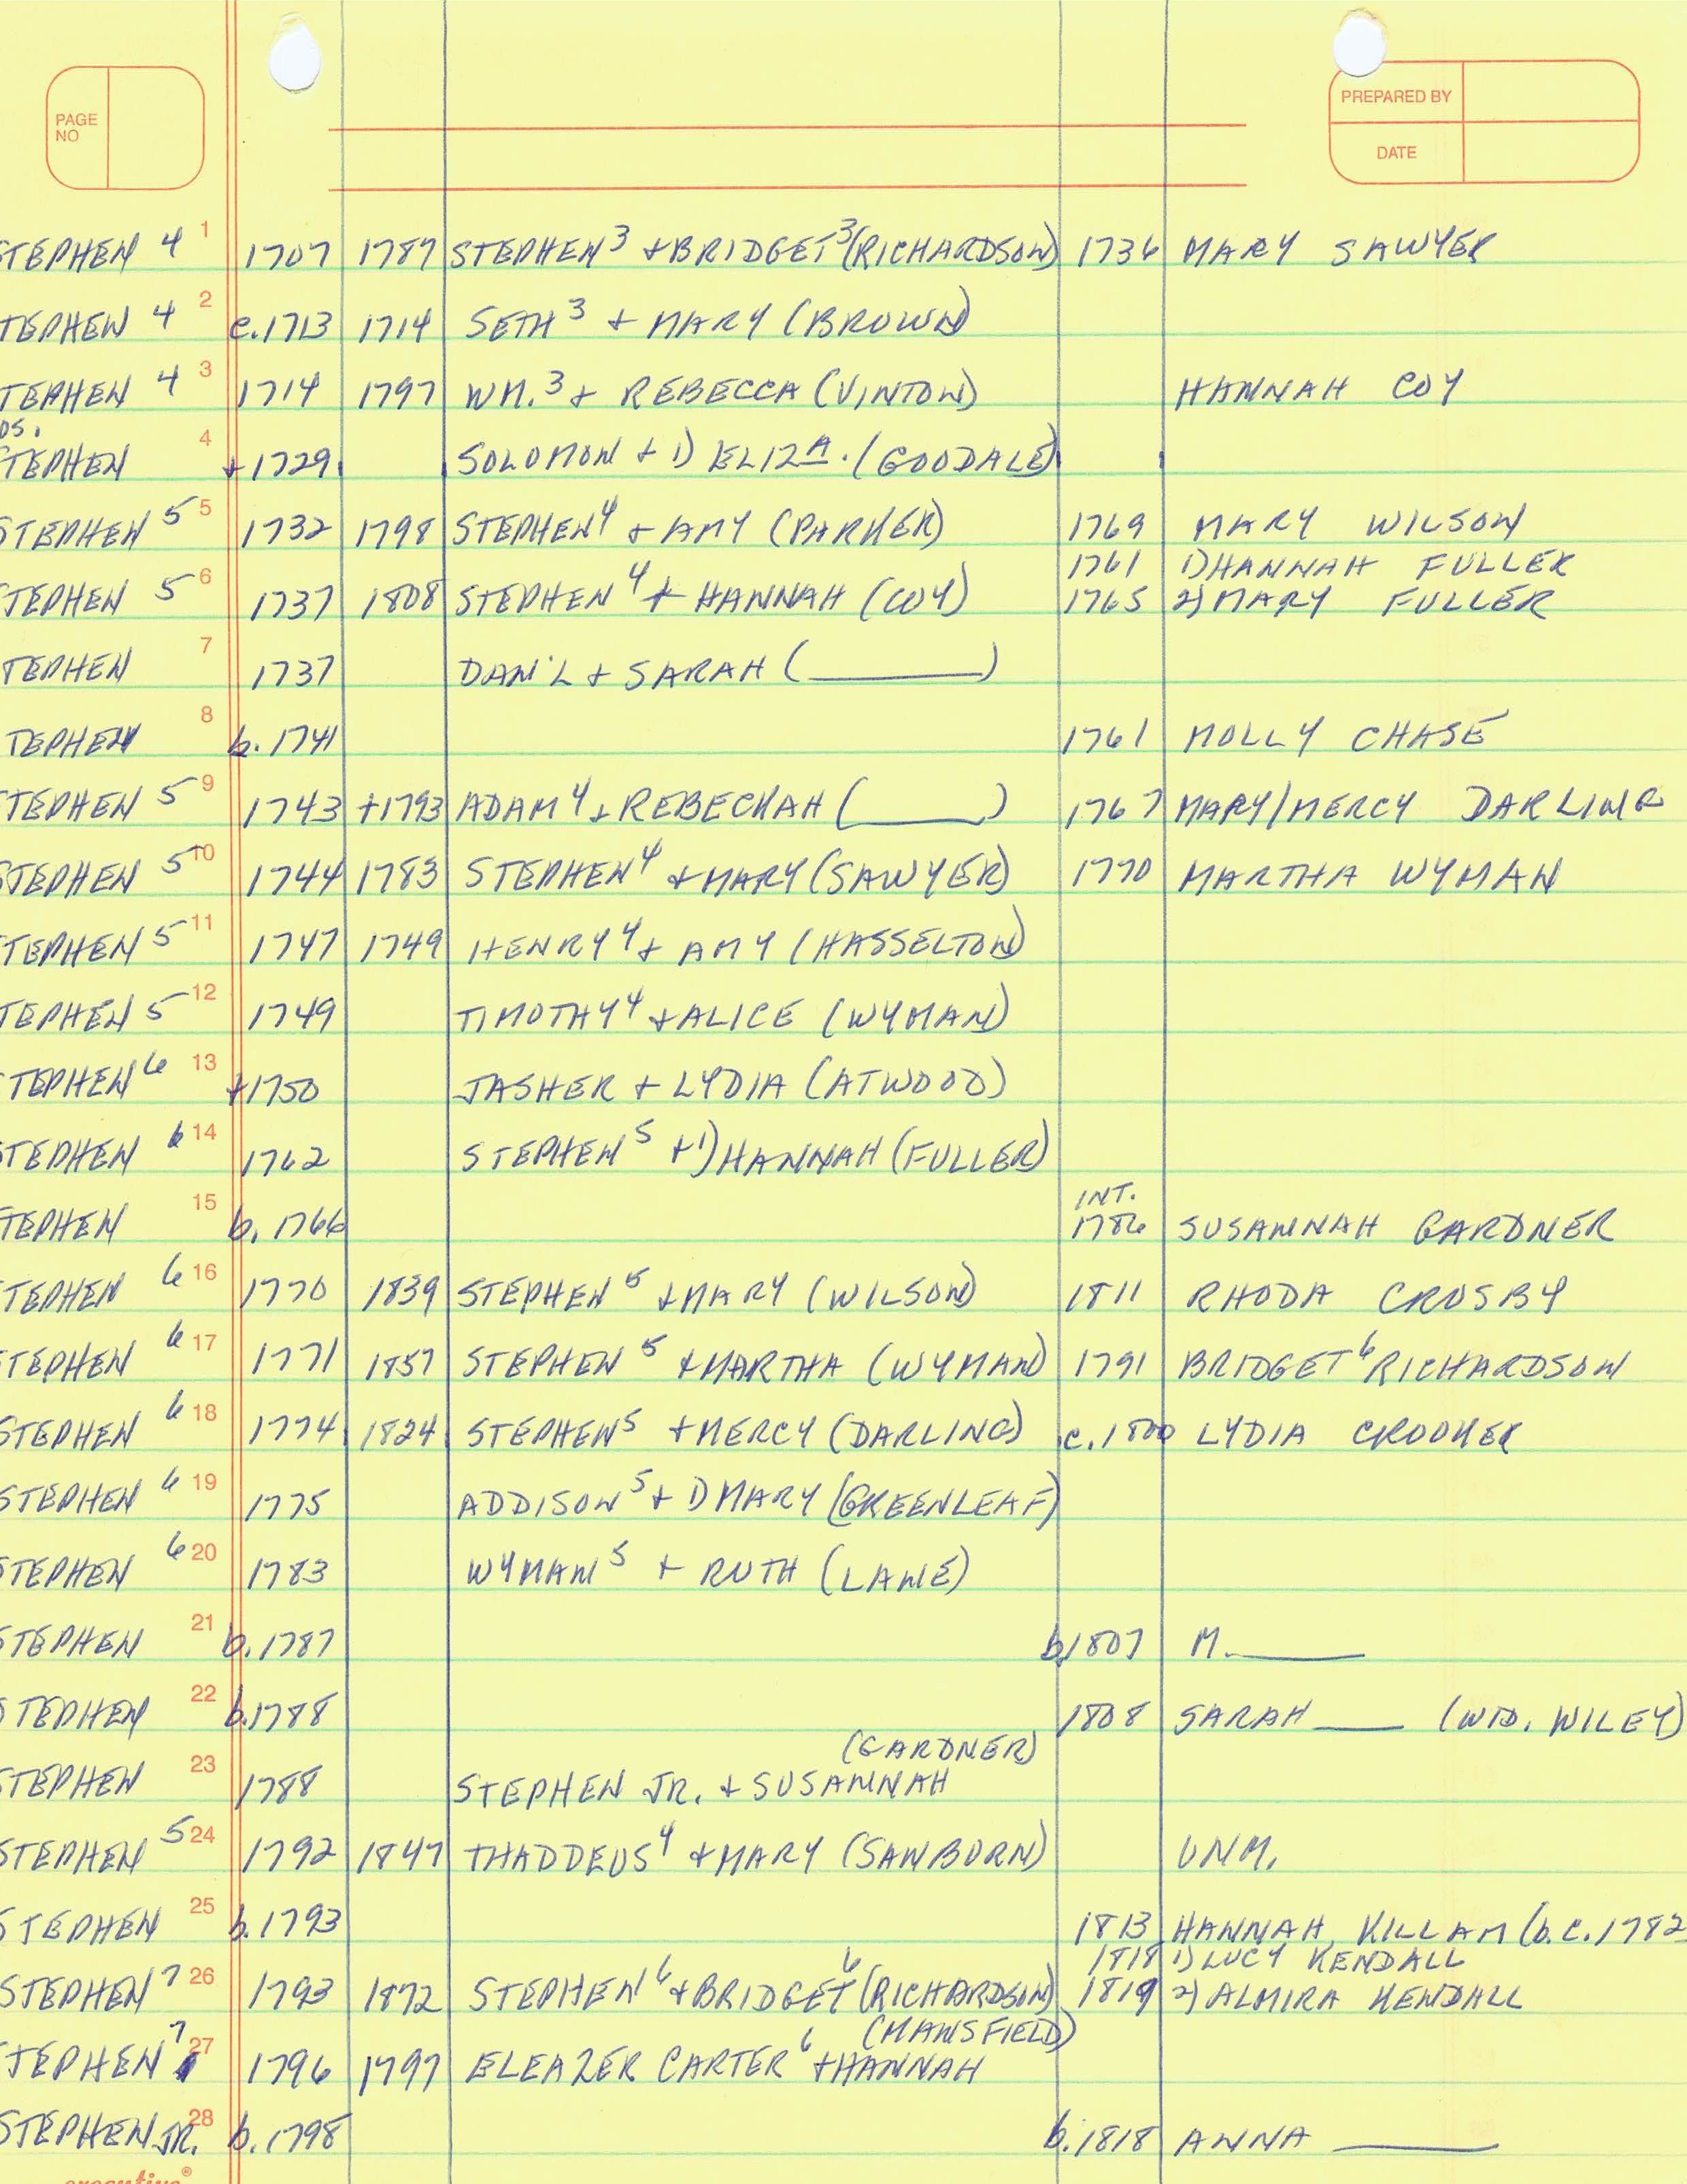 PAGE NO
PREPARED BY
DATE
STEPHEN 4 1 1707 1787 STEPHEN3 + BRIDGET3 (RICHARDSON) 1736 MARY SAWYER
TEPHEN 4 2 c.1713 1714 SETH3 + MARY (BROWN)
TEPHEN 4 3 1714 1797 WM.3 + REBECCA (VINTON) HANNAH COY
OS.
TEPHEN 4 +1729 SOLOMON + 1) ELIZA. (GOODALE)
STEPHEN 5 5 1732 1798 STEPHEN4 + AMY (PARKER) 1769 MARY WILSON
1761 1) HANNAH FULLER
TEPHEN 5 6 1737 1808 STEPHEN4 + HANNAH (COY) 1765 2) MARY FULLER
TEPHEN 7 1737 DAN'L + SARAH (______)
TEPHEN 8 b. 1741 1761 MOLLY CHASE
STEPHEN 5 9 1743 +1793 ADAM4 + REBECKAH (______) 1767 MARY/MERCY DARLING
STEPHEN 5 10 1744 1783 STEPHEN4 + MARY (SAWYER) 1770 MARTHA WYMAN
TEPHEN 5 11 1747 1749 HENRY4 + AMY (HASSELTON)
TEPHEN 5 12 1749 TIMOTHY4 + ALICE (WYMAN)
TEPHEN6 13 +1750 JASHER + LYDIA (ATWOOD)
STEPHEN 6 14 1762 STEPHEN5 + 1) HANNAH (FULLER)
INT.
TEPHEN 15 b. 1766 1786 SUSANNAH GARDNER
TEPHEN 6 16 1770 1839 STEPHEN5 + MARY (WILSON) 1811 RHODA CROSBY
TEPHEN 6 17 1771 1857 STEPHEN5 + MARTHA (WYMAN) 1791 BRIDGET6 RICHARDSON
STEPHEN 6 18 1774 1824 STEPHEN5 + MERCY (DARLING) c. 1800 LYDIA CROOKER
STEPHEN 6 19 1775 ADDISON5 + 1) MARY (GREENLEAF)
STEPHEN 6 20 1783 WYMAN5 + RUTH (LANE)
STEPHEN 21 b. 1787 b.1807 M. ______
STEPHEN 22 b.1788 1808 SARAH ____ (WID. WILEY)
(GARDNER)
STEPHEN 23 1788 STEPHEN JR. + SUSANNAH
STEPHEN 5 24 1792 1847 THADDEUS4 + MARY (SANBORN) UNM.
STEPHEN 25 b. 1793 1813 HANNAH KILLAM (b. c. 1782
1818 1) LUCY KENDALL
STEPHEN7 26 1793 1872 STEPHEN6 + BRIDGET6 (RICHARDSON) 1819 2) ALMIRA KENDALL
(MANSFIELD)
STEPHEN7 27 1796 1797 ELEAZER CARTER6 + HANNAH
STEPHEN JR. 28 b. 1798 b. 1818 ANNA ______
executive®